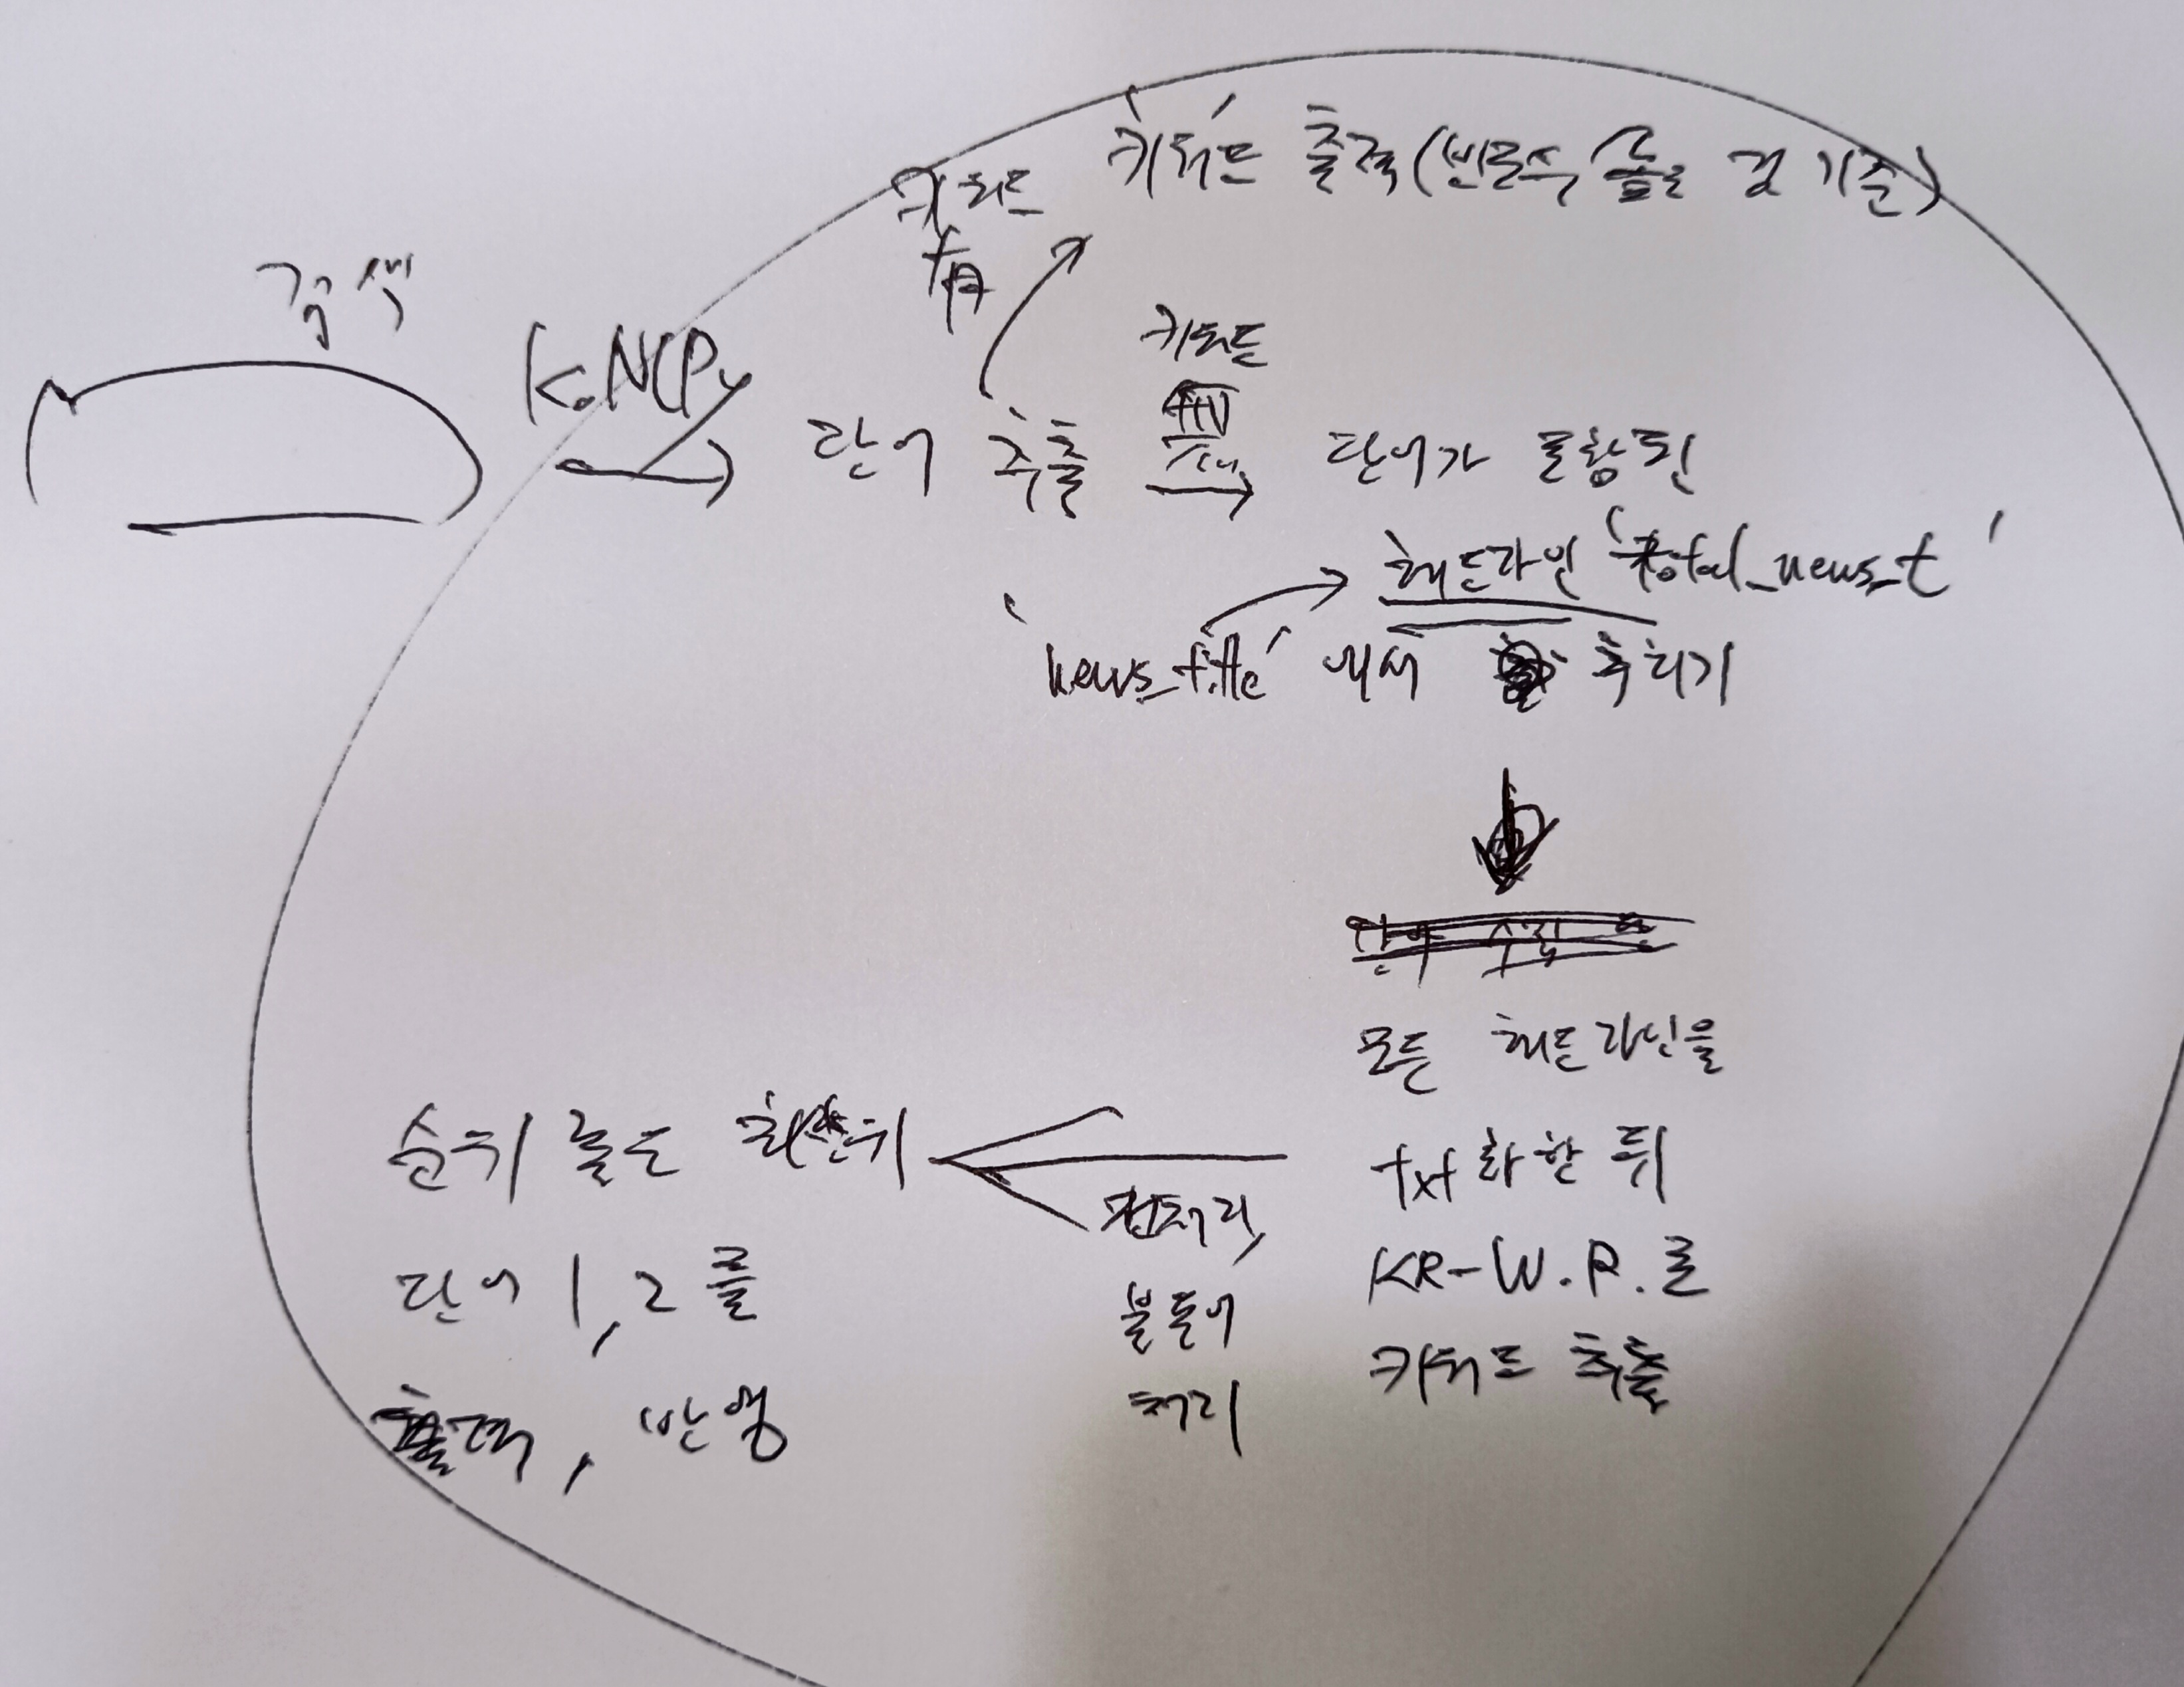 검색
KoNLPy
키워드
키워드 출력(빈도수 높은 것 기준)
키워드
단어 추출
단어가 포함된
헤드라인 'total_news_t'
'news_title' 에서 추리기
모든 헤드라인을
txt화 한 뒤
KR-W.R.로
키워드 추출
전처리,
불용어
처리
순위 높은
단어 1, 2를
출력, 반영